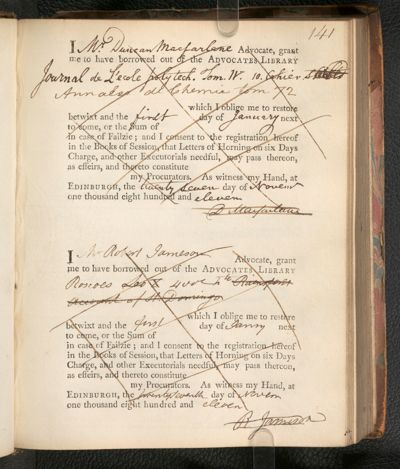 141
I Mr. Duncan Macfarlane Advocate, grant
me to have borrowed out of the ADVOCATES LIBRARY
Journal de L'ecole polytech. Tom IV. 10. Cahier
Annales de Chemie Tom 72
which I oblige me to restore
betwixt and the first day of January next
to come, or the Sum of
in case of Failzie; and I consent to the registration hereof
in the Books of Session, that Letters of Horning on six Days
Charge, and other Executorials needful, may pass thereon,
as effeirs, and thereto constitute
my Procurators. As witness my Hand, at
EDINBURGH, the twenty seven day of Novem
one thousand eight hundred and eleven
D. Macfarlane
I Mr Robert Jameson Advocate, grant
me to have borrowed out of the ADVOCATES LIBRARY
Roscoes Leo X 4 vols
account of St Domingo
which I oblige me to restore
betwixt and the first day of Janry next
to come, or the Sum of
in case of Failzie; and I consent to the registration hereof
in the Books of Session, that Letters of Horning on six Days
Charge, and other Executorials needful, may pass thereon,
as effeirs, and thereto constitute
my Procurators. As witness my Hand, at
EDINBURGH, the day of Novem
one thousand eight hundred and eleven
R. Jameson